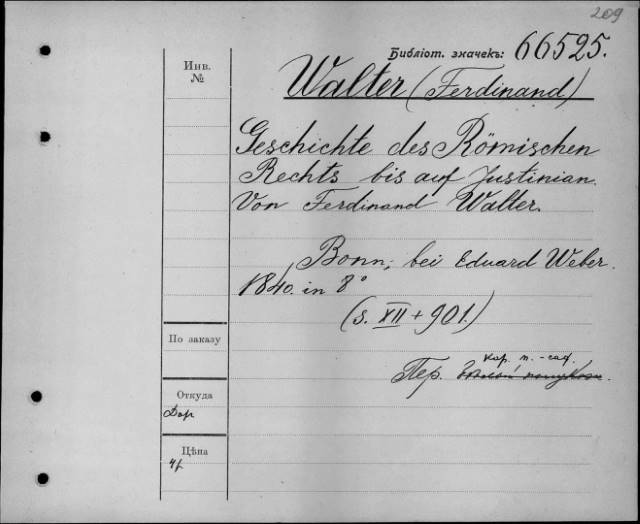 209
Библіот. значекъ: 66525.
Инв.
№
Walter (Ferdinand)
Geschichte des Römischen
Rechts bis auf Justinian.
Von Ferdinand Walter.
Bonn, bei Eduard Weber.
1840. in 8°
(S. XII + 901.)
По заказу
кар. п. - саф.
Пер.
Откуда
Дар
Цѣна
4р